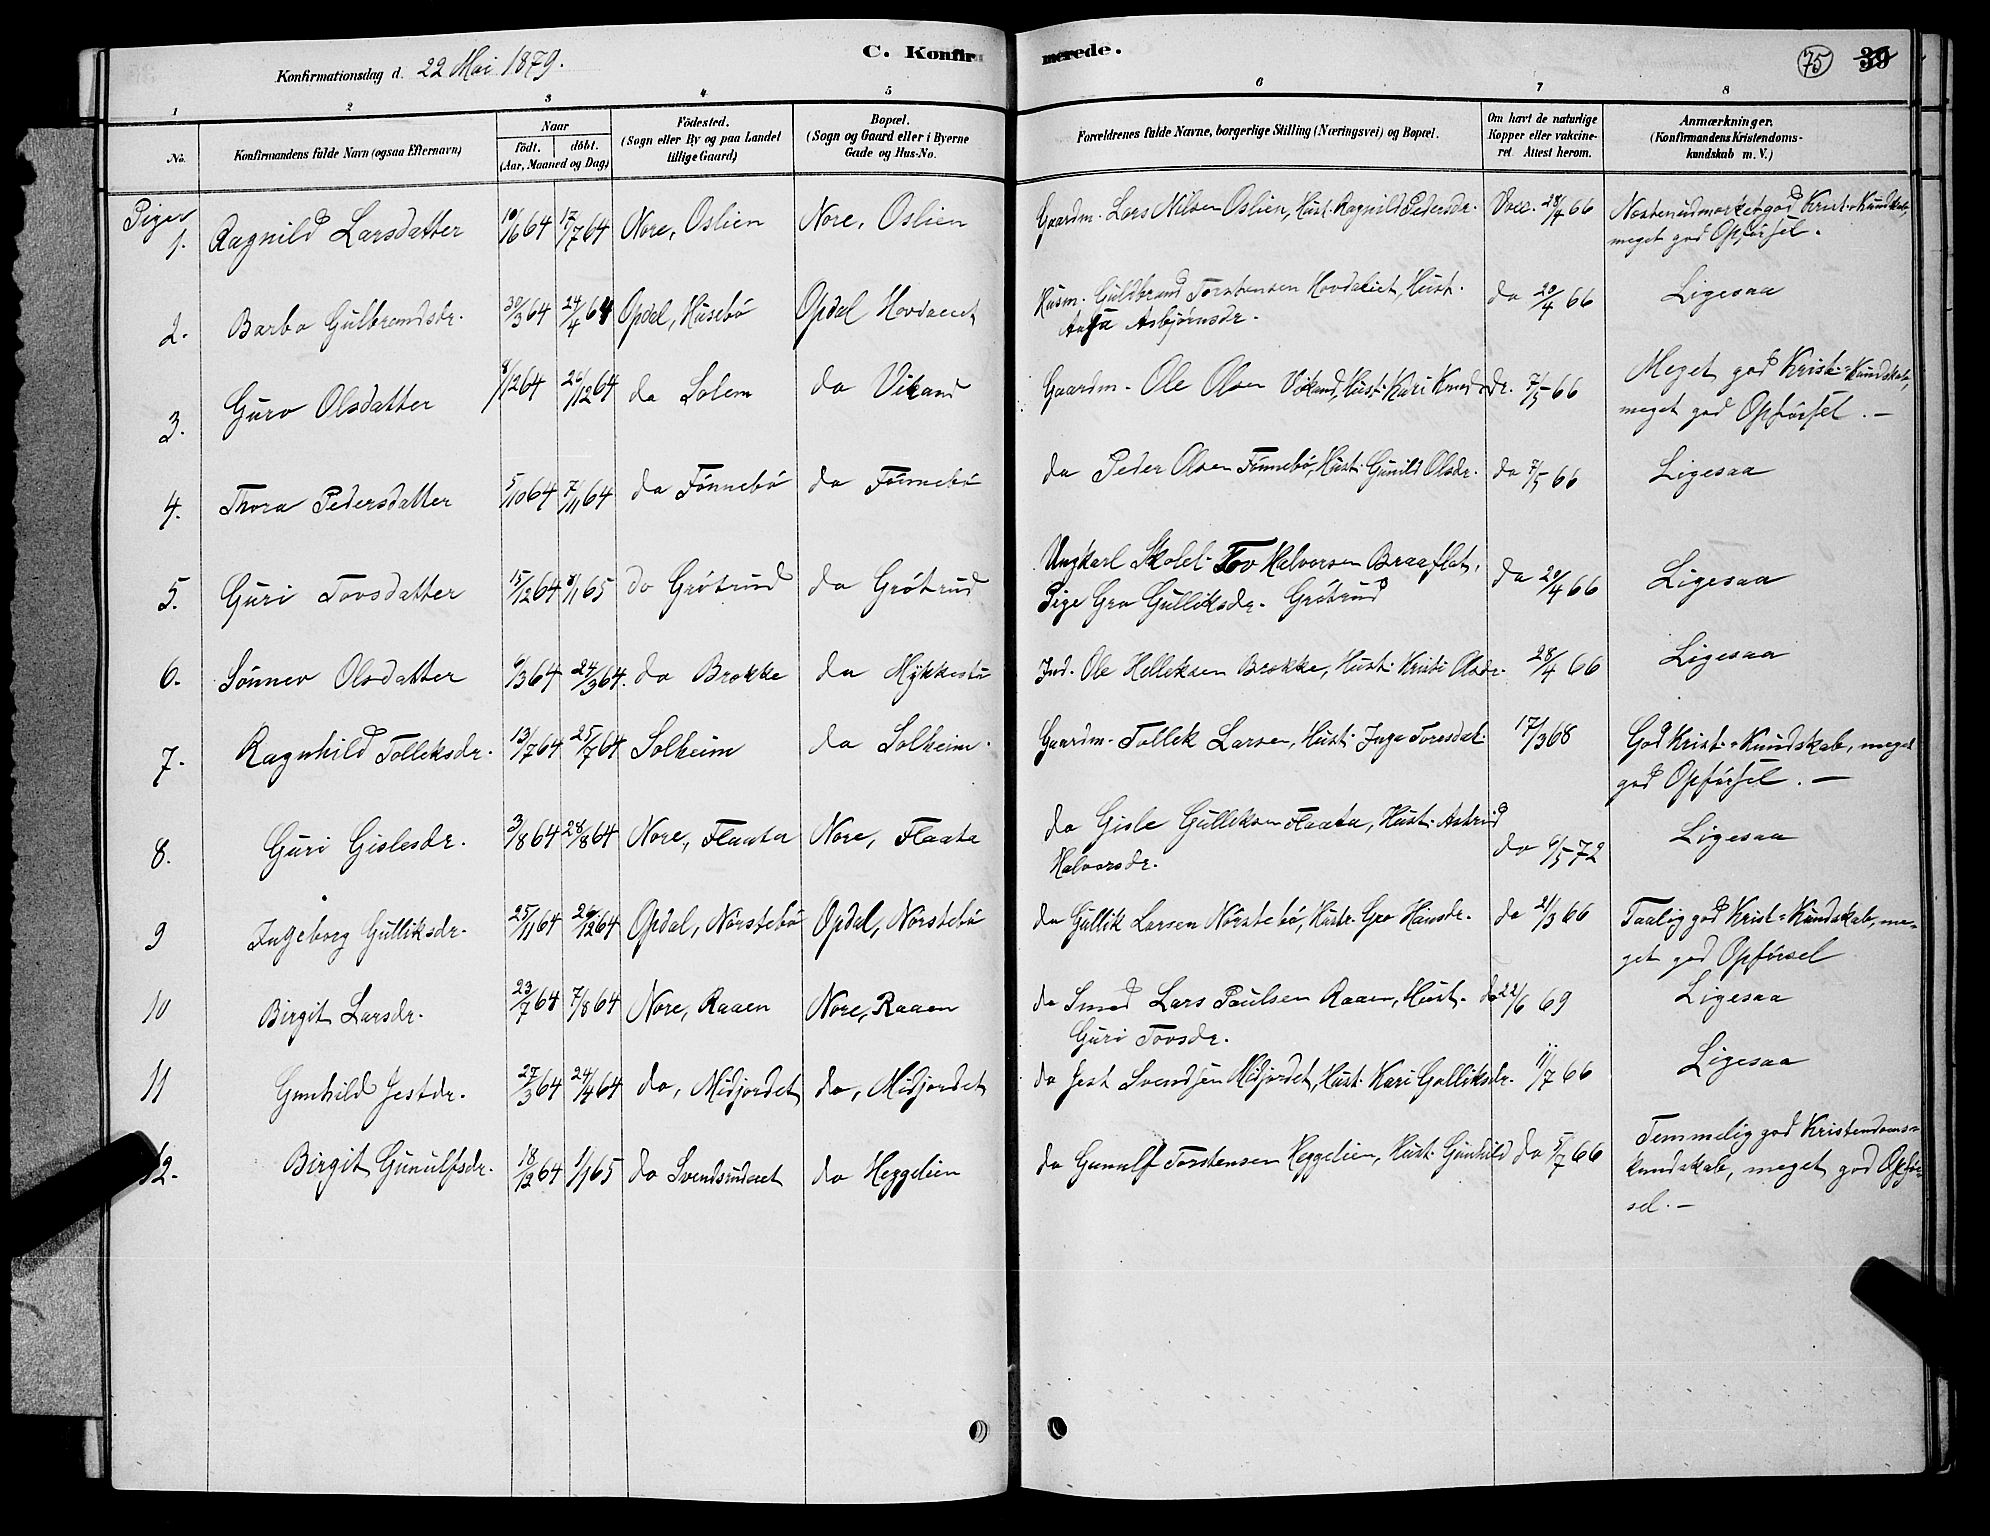 Konfirmationsdag d. 22 Mai 1879.
C. Konfirmerede.
75 39
1 2 3 4 5 6 7 8
No.
Konfirmandens fulde Navn (ogsaa Efternavn)
Naar
født. døbt.
(Aar, Maaned og Dag)
Födested.
(Sogn eller By og paa Landet
tillige Gaard)
Bopæl.
(Sogn og Gaard eller i Byerne
Gade og Hus-No.
Forældrenes fulde Navne, borgerlige Stilling (Næringsvei) og Bopæl.
Om havt de naturlige
Kopper eller vakcine-
ret. Attest herom.
Anmærkninger.
(Konfirmandens Kristendoms-
kundskab m. V.)
Piger
1. Ragnild Larsdatter 10/6 64 17/7 64 Nore, Oslien Nore, Oslien Gaardm. Lars Nilsen Oslien, Hust. Ragnild Pedersdr. Vacc. 28/4 66 Næsten udmærket god Krist.-Kundskab,
meget god Opførsel.
2. Barbo Gulbrandsdr. 30/3 64 24/4 64 Opdal, Husebö Opdal Hovdaeiet Husm. Guldbrand Torstensen Hovdaeiet, Hust.
Aasa Asbjørnsdr. do 20/4 66 Ligesaa
3. Guro Olsdatter 9/12 64 26/12 64 do Solem do Vikand Gaardm. Ole Olsen Vikand, Hust. Kari Knudsdr. 7/5 66 Meget god Krist.-Kundskab,
meget god Opförsel. —
4. Thora Pedersdatter 5/10 64 7/11 64 do Fönnebö do Fönnebö do Peder Olsen Fönnebö, Hust. Gunild Olsdr. do 7/5 66 Ligesaa
5. Guri Tovsdatter 15/12 64 8/1 65 do Grötrud do Grötrud Ungkarl Skolel. Tov Halvorsen Braaflat,
Pige Gro Gulliksdr. Grötrud do 20/4 66 Ligesaa
6. Sönnev Olsdatter 6/3 64 24/3 64. do Brokke do Mykkestu Ind. Ole Helleksen Brokke, Hust. Kristi Olsdr. 28/4 66 Ligesaa
7. Ragnhild Tolleksdr. 13/7 64 25/7 64 Solheim do Solheim. Gaardm. Tollek Larsen, Hust. Inga Toresdat. 17/3 68 God Krist.-Kundskab, meget
god Opförsel. —
8. Guri Gislesdr. 3/8 64 28/8 64 Nore, Flaata Nore, Flaata do Gisle Gulliksen Flaata, Hust. Astrid
Halvorsdr. do 6/5 72 Ligesaa
9 Ingeborg Gulliksdr. 25/11 64 26/12 64 Opdal, Nörstebö Opdal, Nörstebö do Gullik Larsen Nörstebö, Hustr. Gro Hansdr. do 21/3 66 Taalig god Krist.-Kundskab, me-
get god Opförsel
10 Birgit Larsdr. 23/7 64 7/8 64 Nore, Raaen Nore, Raaen do Smed Lars Paulsen Raaen, Hust.
Guri Tovsdr. do 22/6 69 Ligesaa
11 Gunhild Jestdr. 27/3 64 24/4 64 do, Midjordet do, Midjordet do Jest Svendsen Midjordet, Hust. Kari Gulliksdr. 11/7 66 Ligesaa
12. Birgit Gunulfsdr. 18/12 64 1/1 65 do Svendsrudeiet do Heggelien do Gunulf Torstensen Heggelien, Hust. Gunhild do 5/7 66 Temmelig god Kristendoms-
kundskab, meget god Opför-
sel. —